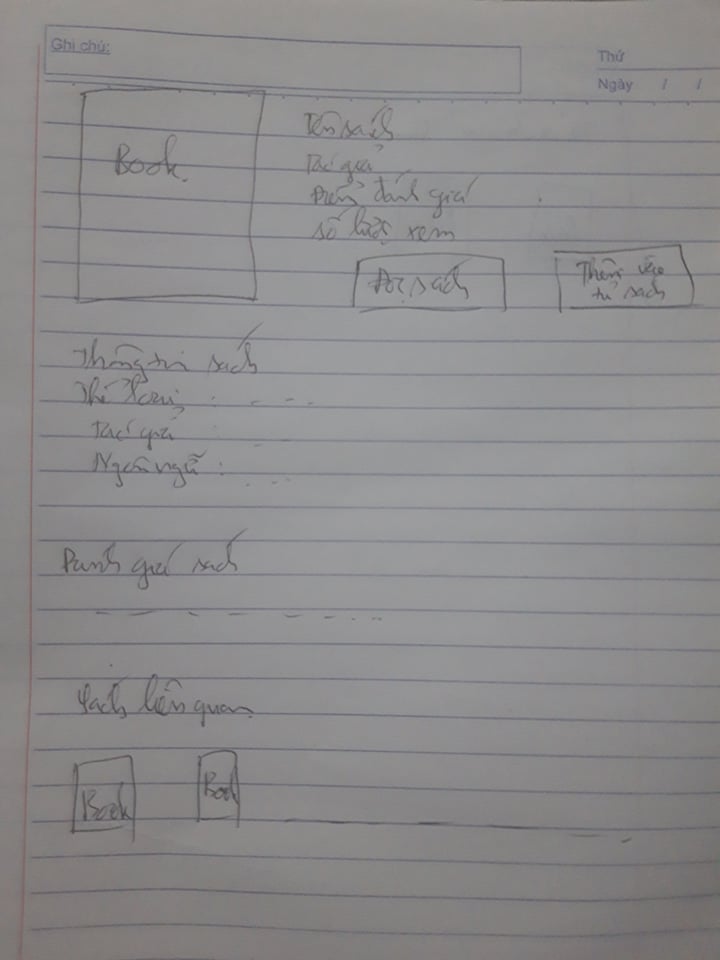 Ghi chú:
Thứ
Ngày / /
Book
Tên sách
Tác giả
Điểm đánh giá
Số lượt xem
Đọc sách
Thêm vào
tủ sách
Thông tin sách
Thể loại :
Tác giả :
Ngôn ngữ :
Đánh giá sách
Sách liên quan
Book
Book